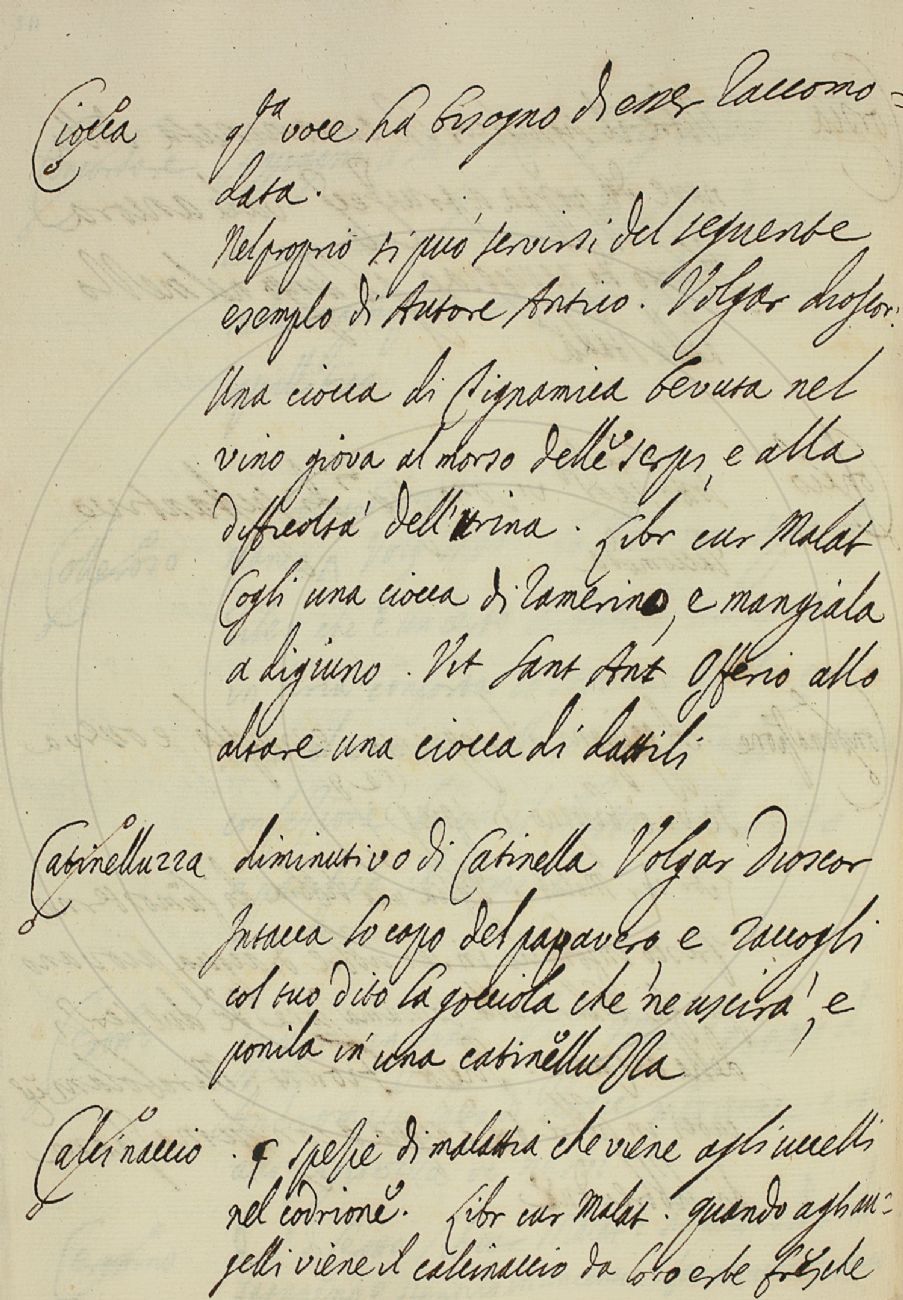 Ciocca qsta voce ha bisogno di esser raccomo=
data.
Nel proprio si può servirsi del seguente
esemplo di Autore Antico. Volgar dioscor:
Una ciocca di Pignamica bevuta nel
vino giova al morso delle serpi, e alla
difficoltà dell'urina. Libr cur Malat
Cogli una ciocca di ramerino, e mangiala
a digiuno. Vit Sant Ant Offerio allo
altare una ciocca di dattili
Catinelluzza diminutivo di Catinella Volgar Dioscor
Intacca lo capo del papavero, e raccogli
col tuo dito la gocciola che ne uscirà, e
ponila in una catinelluzza
Calcinaccio. spezie di malattia che viene agli uccelli
nel codrione. Libr cur Malat. quando agli au=
gelli viene il calcinaccio da loro erbe fresche